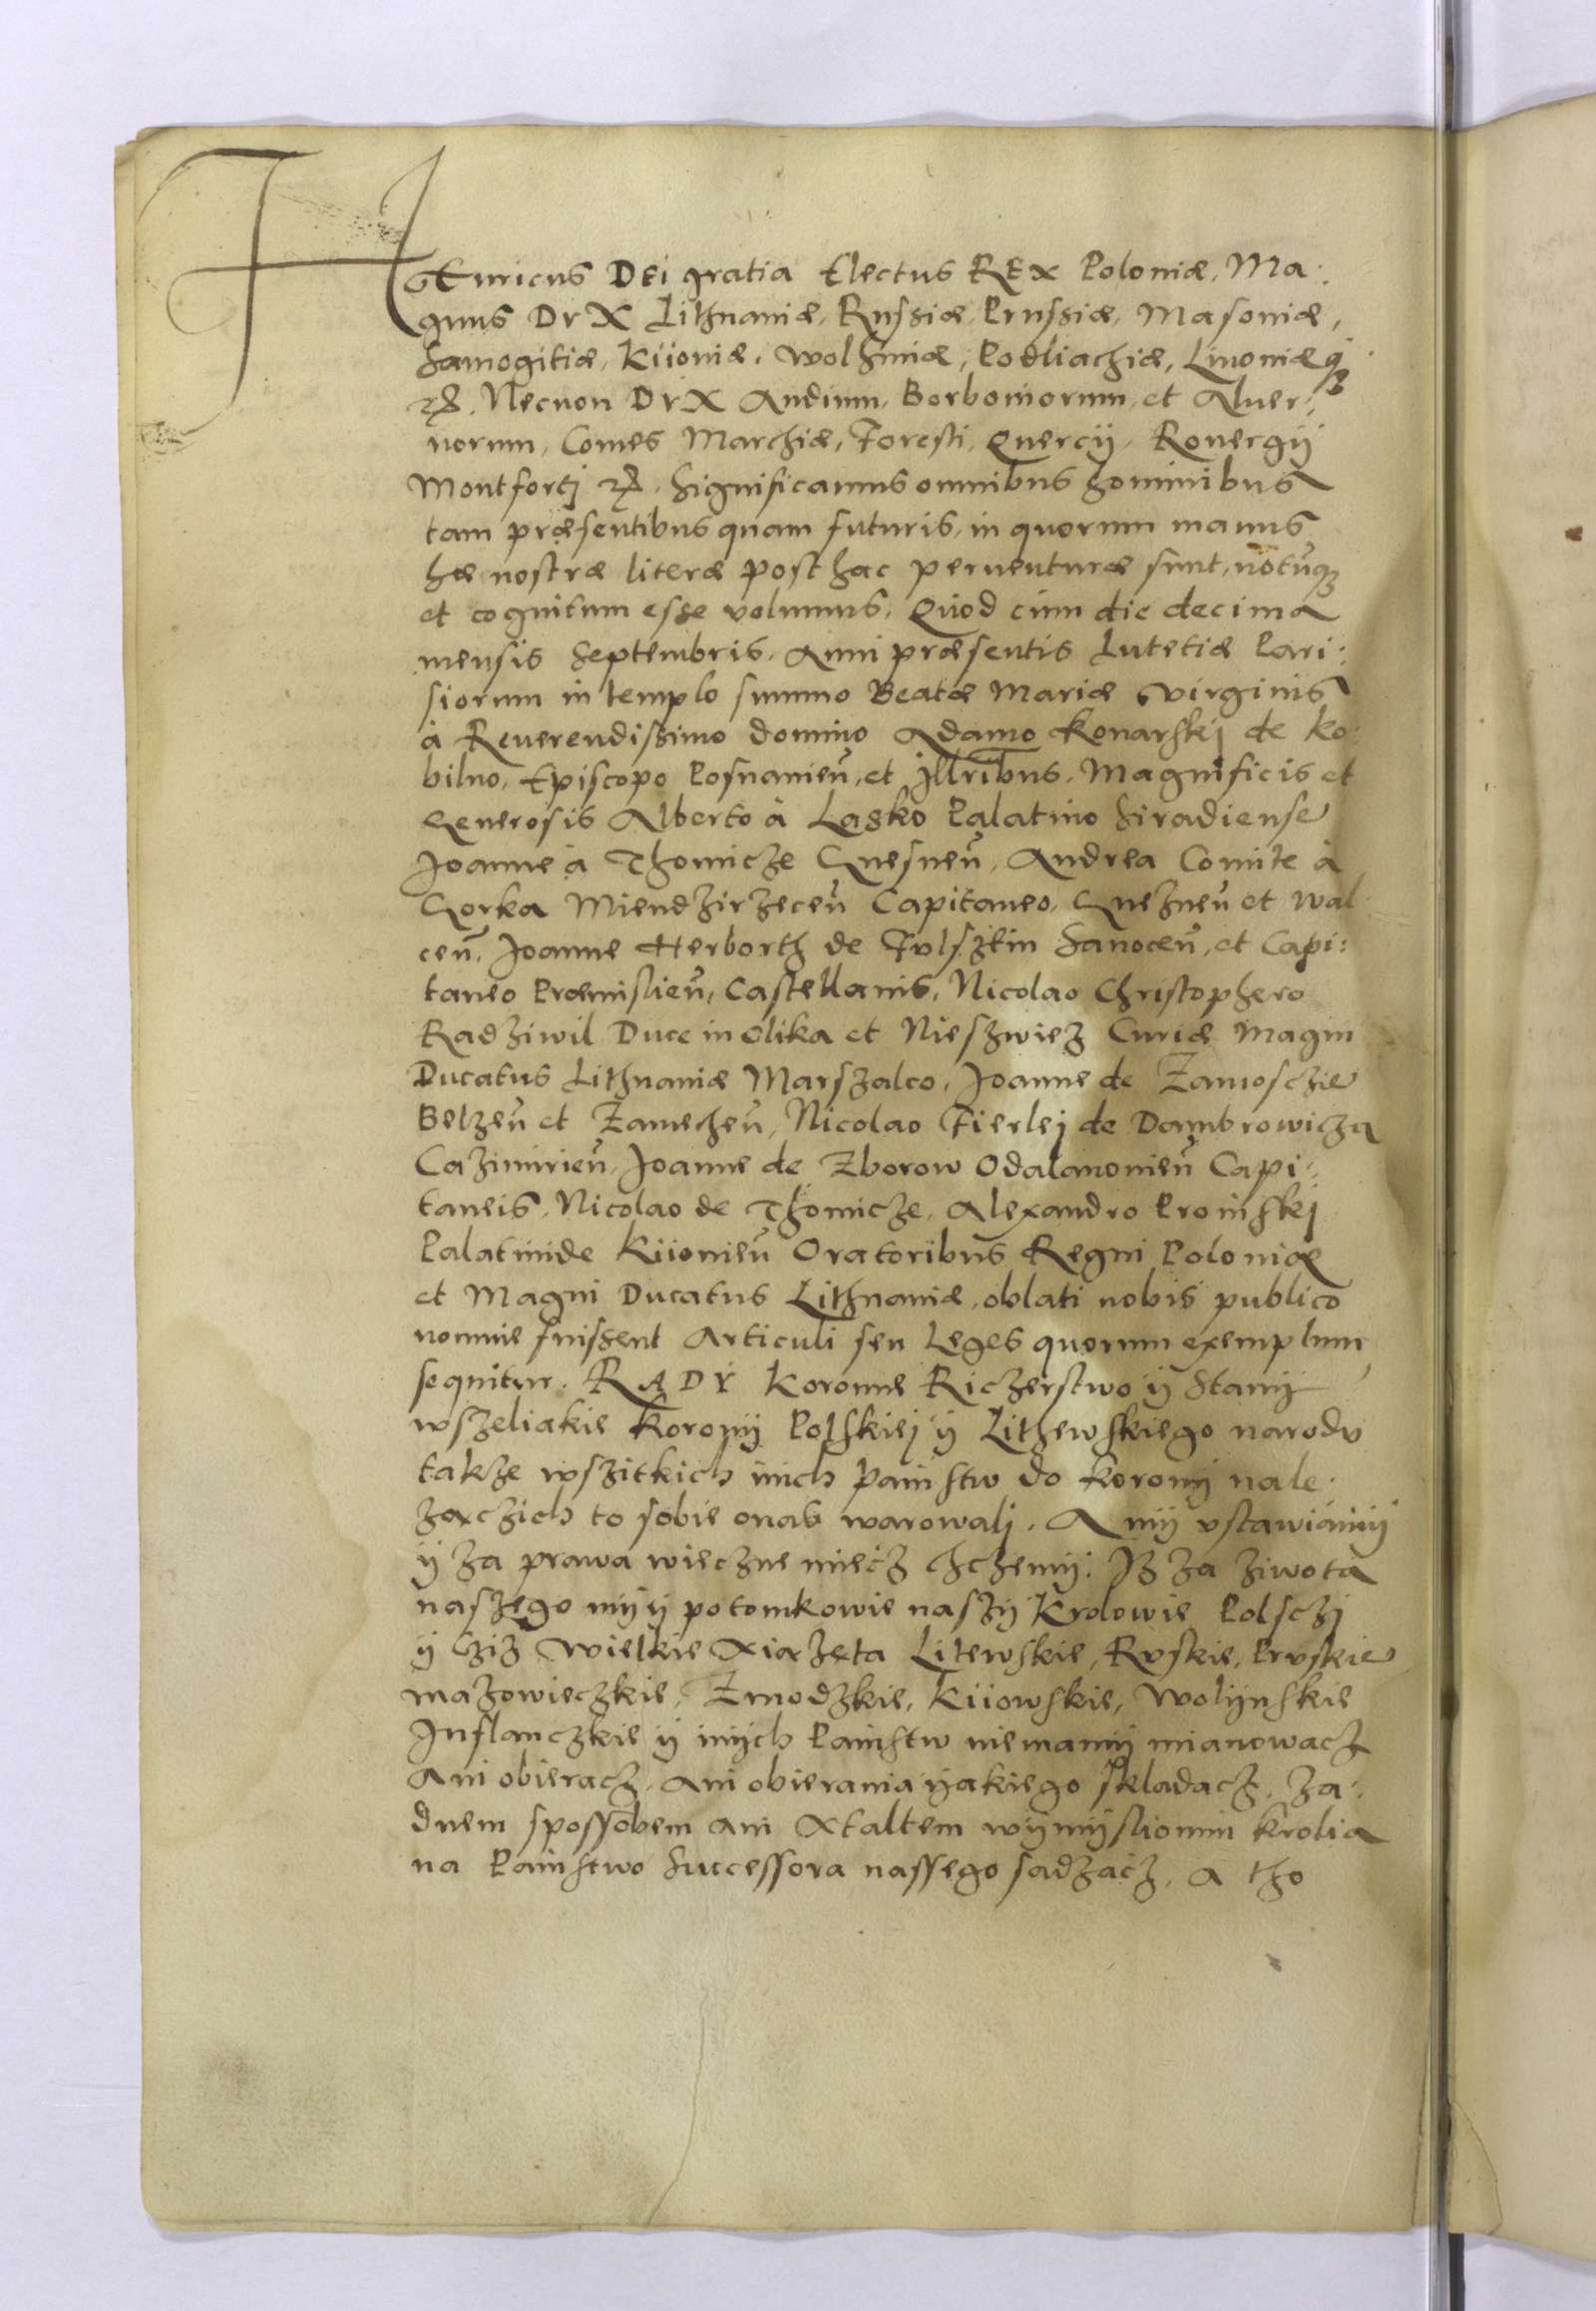 HEnricus DEi gratia Electus REX Poloniæ, Ma:
gnus DVX Lithuaniæ, Russiæ, Prussiæ, Masoniæ,
Samogitiæ, Kiioniæ, Wolhiniæ, Podliachiæ, Liuoniæq3
etc. Necnon DVX Andium, Borboniorum, et Aluer:
norum, Comes Marchiæ, Foresti, Quercij, Rouergij
Montfortj etc. Significamus omnibus hominibus
tam præsentibus quam futuris, in quorum manus
hæ nostræ literæ posthac peruenturæ sunt, notūq3
et cognitum esse volumus. Quod cum die decima
mensis Septembris, Anni præsentis Lutetiæ Pari:
siorum in templo summo Beatæ Mariæ virginis
à Reuerendissimo domino Adamo Konarskj de Ko:
bilno, Episcopo Posnanieñ, et Illribus, Magnificis et
Generosis Alberto à Lasko Palatino Siradiense
Joanne à Thomicze Gnesneñ, Andrea Comite à
Gorka Miendzirzeceñ Capitaneo, Gnezneñ et Wal
ceñ, Joanne Herborth de Fulsztin Sanoceñ, et Capi:
taneo Præmislieñ, Castellanis, Nicolao Christophero
Radziwil Duce in Olika et Nieszwiez Curiæ Magni
Ducatus Lithuaniæ Marszalco, Joanne de Zamosczie
Belzeñ et Zamecheñ, Nicolao Fierlej de Dambrowicza
Cazimirieñ, Joanne de Zborow Odalanonieñ Capi:
taneis, Nicolao de Thomicze, Alexandro Pronskj
Palatinide Kiionieñ Oratoribus Regni Poloniæ
et Magni Ducatus Lithuaniæ, oblati nobis publico
nomine fuissent Articuli seu Leges quorum exemplum
sequitur. RADY Koronne Riczerstwo ÿ Stanÿ
wszeliakie Koronÿ Polskiej ÿ Lithewskiego narodu
takze wszitkich inich Panistw do Koronÿ nale:
zaczich to sobie onas warowalj. A mÿ vstawiámÿ
ÿ za prawa wieczne miećz chczemÿ: Iz za ziwota
naszego mÿ ÿ potomkowie naszÿ Krolowie Polsczj
ÿ cziz Wielkie Xiazęta Litewskie, Ruskie, Pruskie
mazowieczkie, Zmodzkie, Kiiowskie, Wolÿnskie
Inflanczkie ÿ inÿch Panistw niemamÿ mianowacz
Ani obieracz, Ani obierania ÿakiego skladacz, Za:
dnem spossobem ani Xtaltem wÿmÿslionim Krolia
na Panistwo Successora nassego sadzacz, A tho